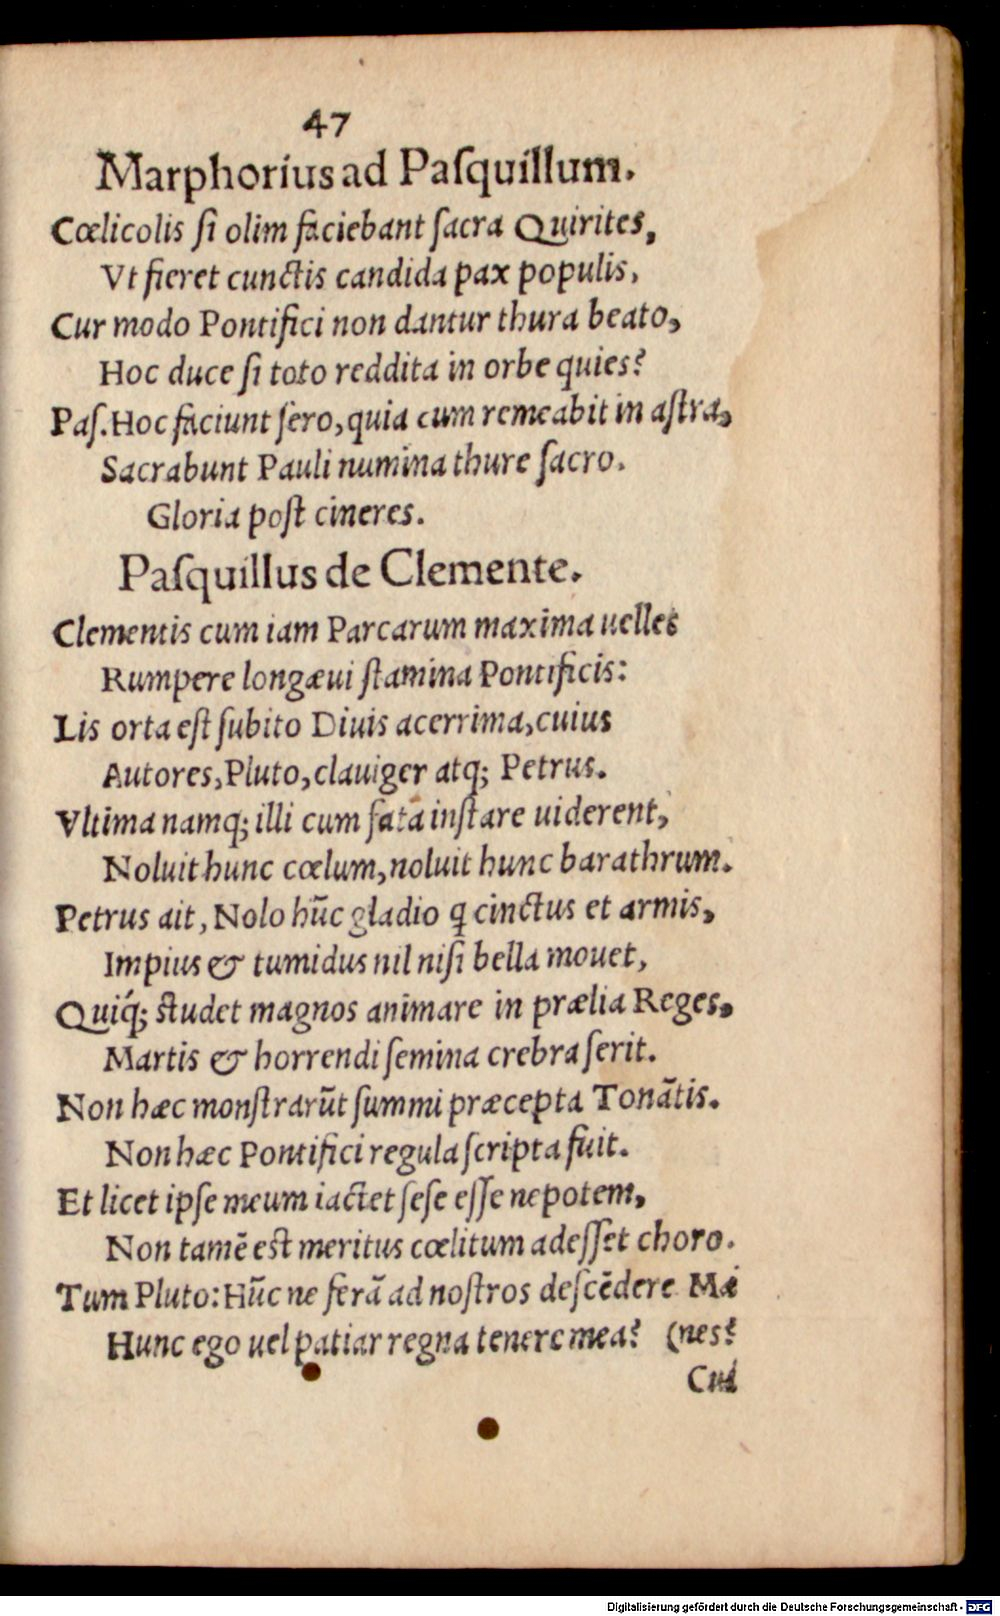 47
Marphorius ad Paſquillum.
Cœlicolis ſi olim faciebant ſacra Quirites,
Vt fieret cunctis candida pax populis,
Cur modo Pontifici non dantur thura beato,
Hoc duce ſi toto reddita in orbe quies?
Paſ. Hoc faciunt ſero, quia cum remeabit in aſtra,
Sacrabunt Pauli numina thure ſacro.
Gloria poſt cineres.
Paſquillus de Clemente.
Clementis cum iam Parcarum maxima uelles
Rumpere longæui ſtamina Pontificis:
Lis orta eſt ſubito Diuis acerrima, cuius
Autores, Pluto, clauiger atq; Petrus.
Vltima namq; illi cum fata inſtare uiderent,
Noluit hunc cœlum, noluit hunc barathrum.
Petrus ait, Nolo hūc gladio q̃ cinctus et armis,
Impius & tumidus nil niſi bella mouet,
Quiq́; ſtudet magnos animare in prælia Reges,
Martis & horrendi ſemina crebra ſerit.
Non hæc monſtrarūt ſummi præcepta Tonātis.
Non hæc Pontifici regula ſcripta fuit.
Et licet ipſe meum iactet ſeſe eſſe nepotem,
Non tamē est meritus cœlitum adeſſet choro.
Tum Pluto: Hūc ne ferā ad noſtros deſcēdere Ma
Hunc ego uel patiar regna tenere mea? (nes?
Cui
Digitalisierung gefördert durch die Deutsche Forschungsgemeinschaft - DFG